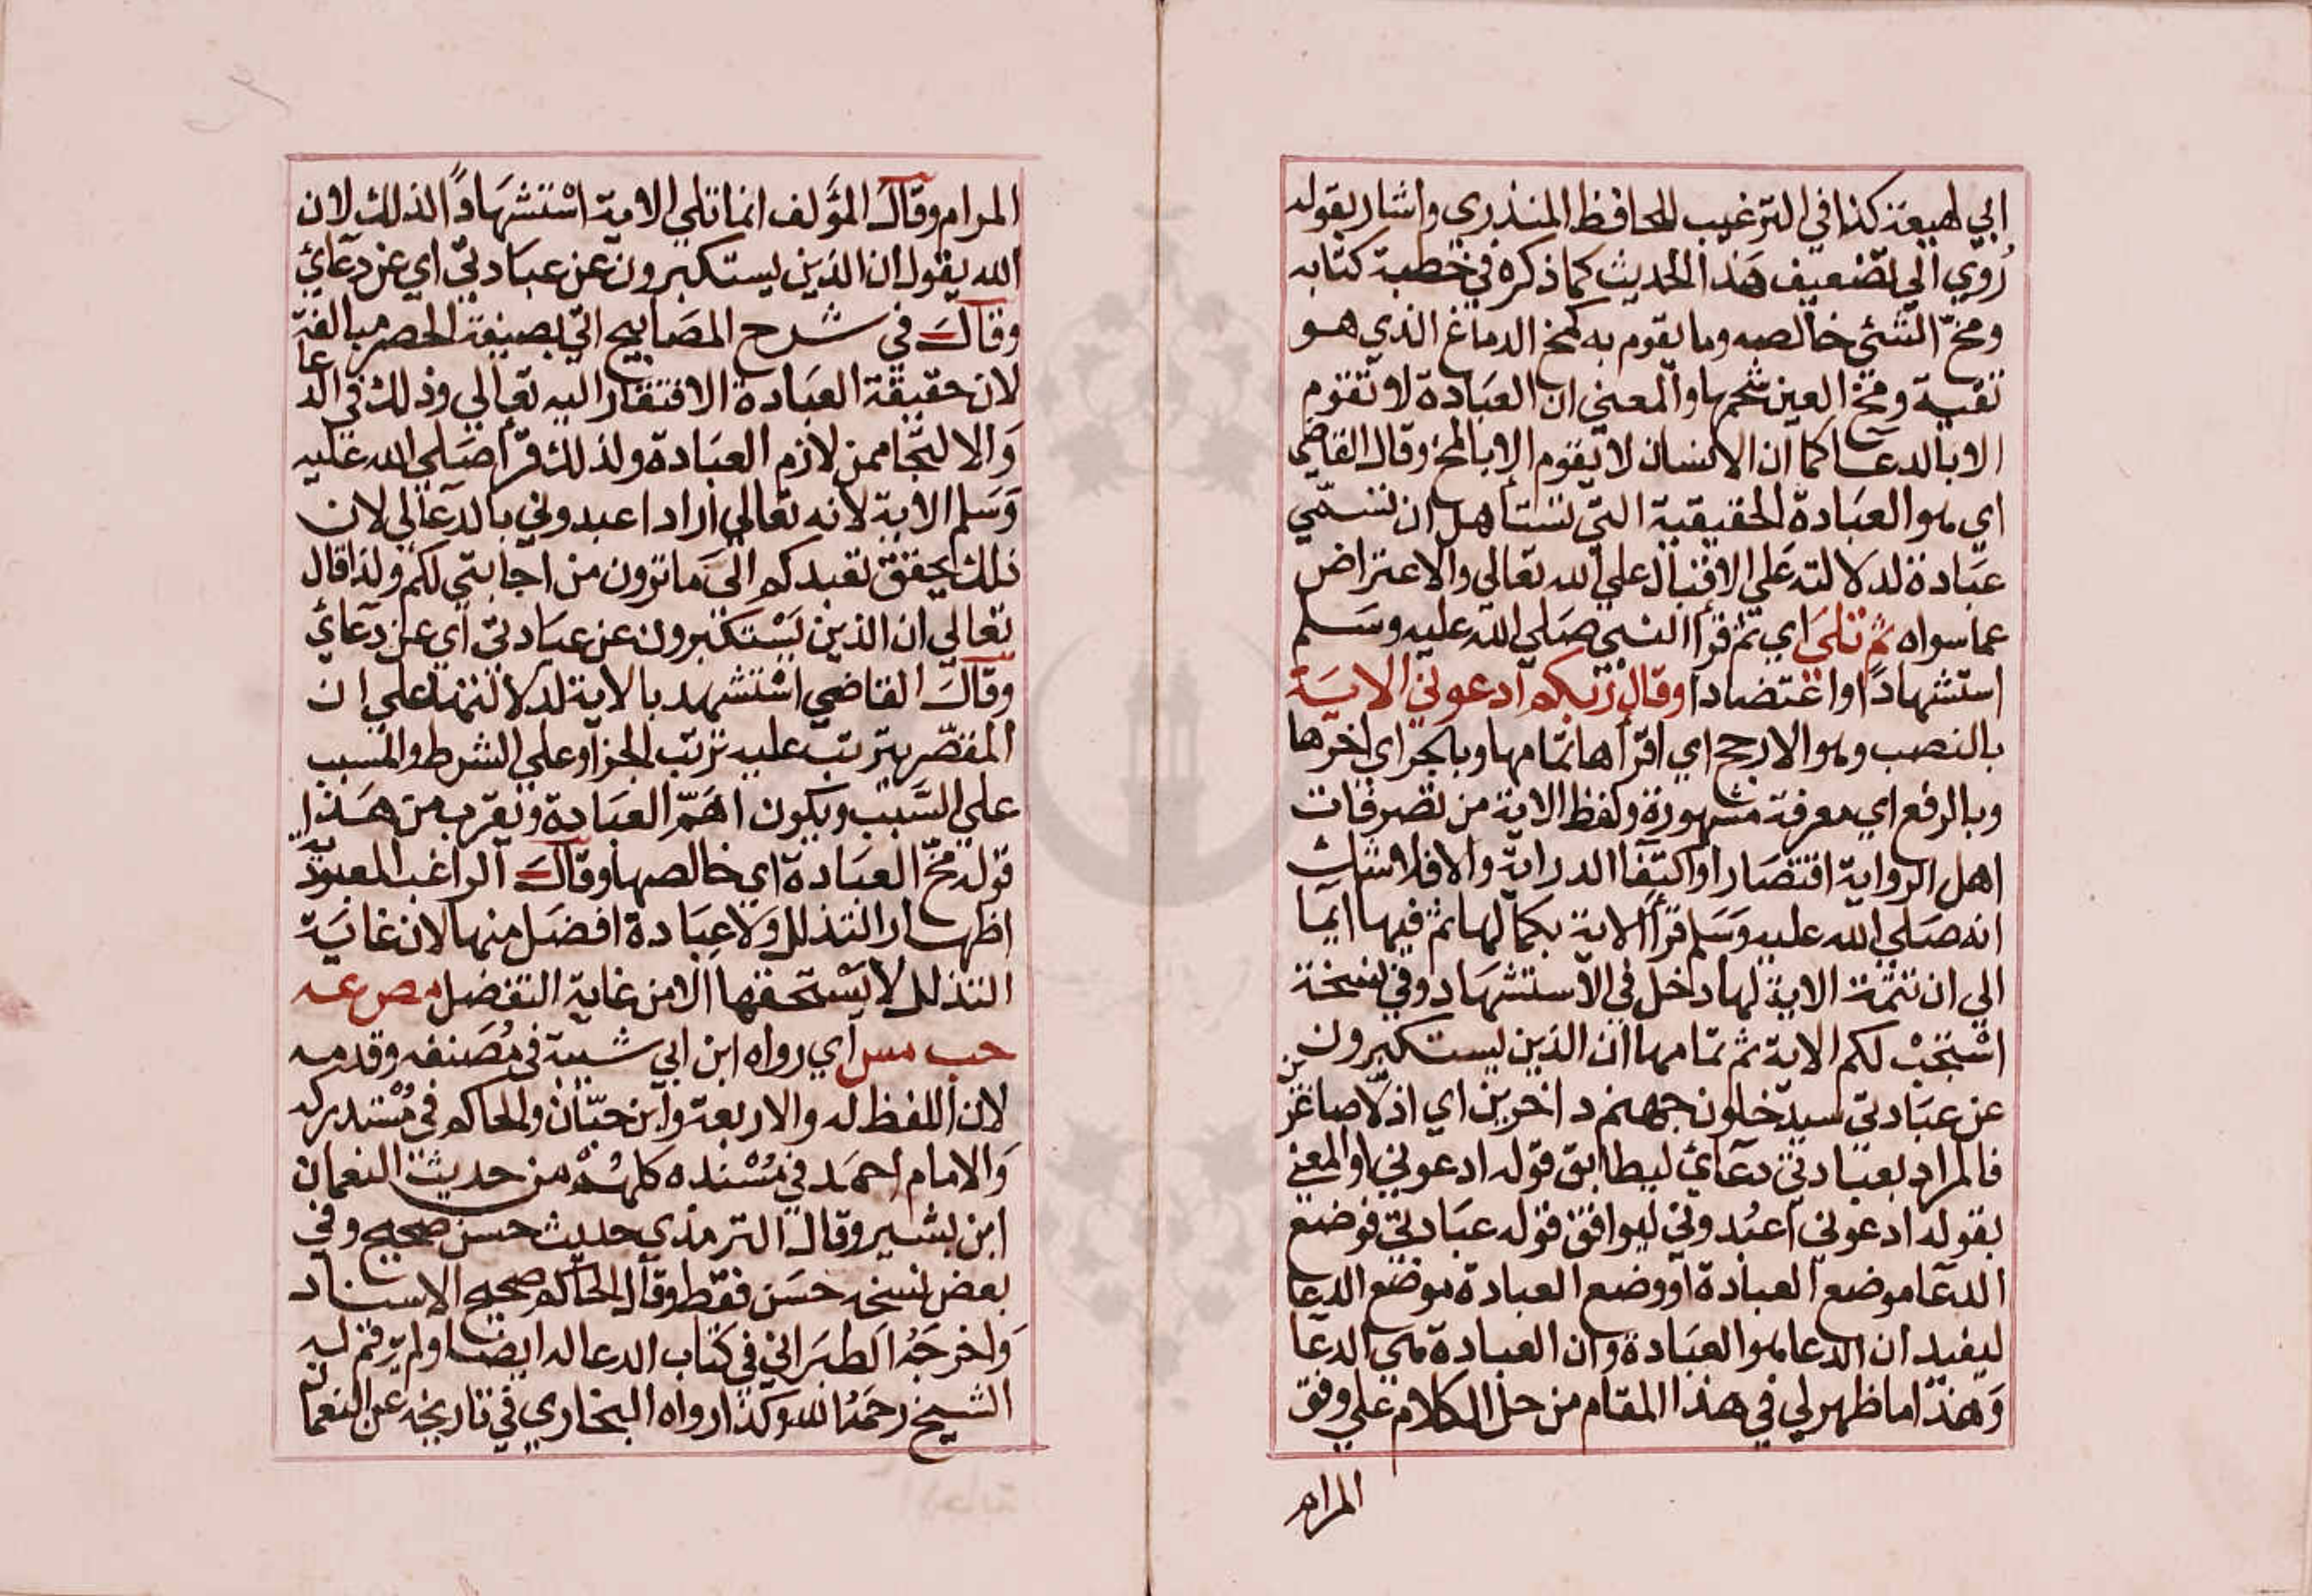 ابي لهيعة كذا في الترغيب للحافظ المنذري واشار بقوله
رُوي الي تضعيف هذا الحديث كما ذكره في خطبة كتابه
ومخّ الشئ خالصه وما يقوم به كمخ الدماغ الذي هو
نقيه ومخ العين شحمها والمعني ان العبادة لا تقوم
الا بالدعا كما ان الانسان لا يقوم الا بالمخ وقال القاضي
اي هو العبادة الحقيقية التي تستأهل ان تسمّي
عبادة لدلالته علي الاقبال علي الله تعالي والاعتراض
عما سواه ثم تلي اي ثم قرأ النبي صلي الله عليه وسلم
استشهادًا واعتضادا وقال ربكم ادعوني الاية
بالنصب وهو الارجح اي اقرأها بتمامها وبالجر اي اخرها
وبالرفع اي معرفة مشهورة ولفظ الاية من تصرفات
اهل الرواية اقتصارا واكتفا الدراية والا فلا شك
انه صلي الله عليه وسلم قرأ الاية بكمالها ثم فيها ايما
الي ان تتمة الاية لها دخل في الاستشهاد وفي نسخة
اسْتَجَبْ لكم الاية ثم تمامها ان الذين يستكبرون
عن عبادتي سيدخلون جهنم داخرين اي اذلّا صاغرين
فالمراد بعبادتي دعائ ليطابق قوله ادعوني او المعني
بقوله ادعوني اعبُدوني ليوافق قوله عبادتي فوضع
الدعا موضع العبادة او وضع العبادة موضع الدعا
ليفيد ان الدعا هو العبادة وان العبادة هي الدعا
وهذا ما ظهر لي في هذا المقام من حل الكلام علي وفق
المرام
المرام وقال المؤلف انما تلي الاية اسْتشهادًا لذلك لان
الله يقول ان الذين يستكبرون عن عبادتي اي عن دعائ
وقال في شرح المصابيح اتي بصيغة الحصر مبالغة
لان حقيقة العبادة الافتقار اليه تعالي وذلك في الدعا
والالتجا ممن لازم العبادة ولذلك قرأ صلي الله عليه
وسلم الاية لانه تعالي اراد اعبدوني بالدعا لي لان
ذلك يحقق تعبدكم الي ما ترون من اجابتي لكم ولذا قال
تعالي ان الذين يسْتكبرون عن عبادتي اي عن دعائ
وقال القاضي اسْتشهد بالاية لدلالتها علي ان
المقصّر يترتب عليه ترتب الجزاء علي الشرط والمسبب
علي السبب ويكون اهمّ العبادة ويقرب من هذا
قوله مخّ العبادة اي خالصها وقال الراغب العبوديّة
اظهار التذلل ولا عبادة افضل منها لان غاية
التذلل لا يسْتحقها الا من غاية التفضل مص عه
حب مس اي رواه ابن ابي شيبة في مُصَنفه وقدمه
لان اللفظ له والاربعة وابن حبّان والحاكم في مُسْتدركه
والامام احمد في مُسْنده كلهُمْ من حديث النعمان
ابن بشير وقال الترمذي حديث حسن صحيح وفي
بعض نسخه حسن فقط وقال الحاكم صحيح الاسناد
واخرجهُ الطبراني في كتاب الدعا له ايضا ولم يرقم له
الشيخ رحمهُ الله وكذا رواه البخاري في تاريخه عن النعمان